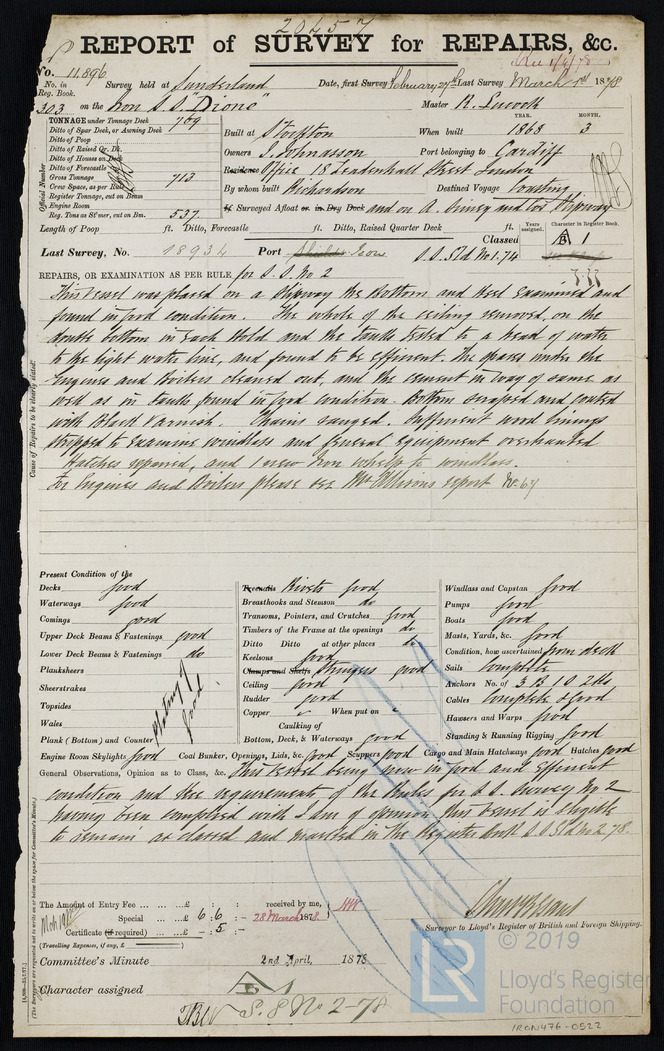 20457
REPORT of SURVEY for REPAIRS, &c.
No. 11,896
No. in Reg. Book.
Survey held at Sunderland
Date, first Survey February 27th Last Survey March 1st 1878
303 on the Iron S.S. "Drone"
Master R.
TONNAGE under Tonnage Deck 709
Ditto of Spar Deck, or Awning Deck
Ditto of Poop
Ditto of Raised Qr. Dk.
Ditto of Houses on Deck
Ditto of Forecastle
Gross Tonnage 713
Crew Space, as per Rule
Register Tonnage, cut on Beam
Engine Room
Reg. Tons as St'mer, cut on Bm. 537
Official Number
YEAR. MONTH.
Built at Stockton When built 1868 3
Owners J. Johnasson Port belonging to Cardiff
Residence Office 18 Leadenhall Street London
By whom built Richardson Destined Voyage Coasting
If Surveyed Afloat or in Dry Dock and on a Slipway
Length of Poop ft. Ditto, Forecastle ft. Ditto, Raised Quarter Deck ft.
Years assigned. Character in Register Book.
Classed A 1
Last Survey, No. 18934 Port Shields Iron S.S. Sld No 1.74
REPAIRS, OR EXAMINATION AS PER RULE for S.S. No 2
This Vessel was placed on a Slipway the Bottom and Keel Examined and
found in good condition. The whole of the ceiling removed, on the
double bottom in each Hold and the tanks tested to a head of water
to the light water line, and found to be efficient. The spaces under the
Engines and Boilers cleaned out, and the cement in way of same as
well as in tanks found in good condition. Bottom scraped and coated
with Black Varnish. Chains ranged. Sufficient wood linings
stripped to examine windlass and general equipment overhauled
Hatches repaired, and 1 new Iron whelp to windlass.
For Engines and Boilers please see Mr Allisons report No. 67
Cause of Repairs to be clearly stated.
Present Condition of the
Decks good
Waterways good
Comings good
Upper Deck Beams & Fastenings good
Lower Deck Beams & Fastenings do
Planksheers
Sheerstrakes
Topsides
Wales
Plank (Bottom) and Counter
Plating good
Treenails Rivets good
Breasthooks and Stemson do
Transoms, Pointers, and Crutches good
Timbers of the Frame at the openings do
Ditto Ditto at other places do
Keelsons good
Clamps and Shelfs Stringers good
Ceiling good
Rudder good
Copper When put on
Caulking of
Bottom, Deck, & Waterways good
Windlass and Capstan good
Pumps good
Boats good
Masts, Yards, &c. good
Condition, how ascertained from deck
Sails complete
Anchors No. of 3 B 1 0 2 do
Cables complete & good
Hawsers and Warps good
Standing & Running Rigging good
Engine Room Skylights good Coal Bunker, Openings, Lids, &c. good Scuppers good Cargo and Main Hatchways good Hatches good
General Observations, Opinion as to Class, &c. This Vessel being now in good and efficient
condition and the requirements of the Rules for S.S. Survey No 2
having been complied with I am of opinion this Vessel is eligible
to remain as classed and marked in the Register Book S.S. Sld No 2.78.
The Amount of Entry Fee ... ... £ : : received by me,
Special ... ... £ 6 : 6 : - 28 March 1878
Certificate (if required) ... £ - : 5 : -
(Travelling Expenses, if any, £ )
Surveyor to Lloyd's Register of British and Foreign Shipping.
Committee's Minute 2nd April, 1878
Character assigned A 1
S.S No 2-78
© 2019
LR
Lloyd's Register
Foundation
IRON476-0522